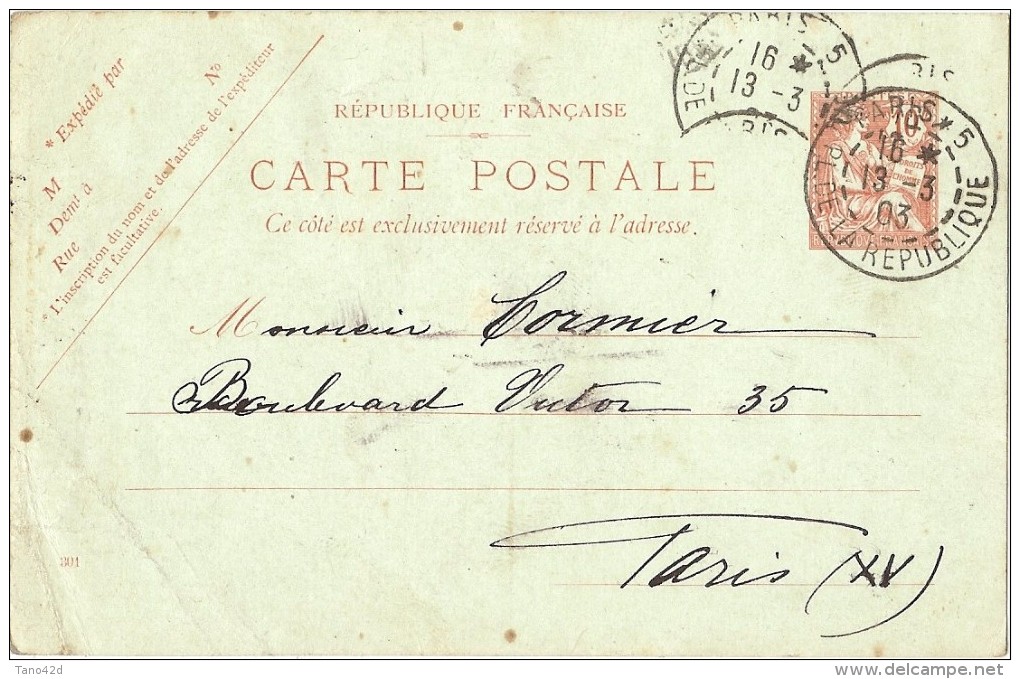 * Expédié par
M
Demt à
Rue
No
* L'inscription du nom et de l'adresse de l'expéditeur
est facultative.
RÉPUBLIQUE FRANÇAISE
CARTE POSTALE
Ce côté est exclusivement réservé à l'adresse.
PARIS 5
16 *
13 -3
DE
RIS
10
DROITS
DE
L'HOMME
PARIS * 5
16 *
13 -3
03
PL. DE LA REPUBLIQUE
Monsieur Cormier
Boulevard Victor 35
Paris (XV)
301
Tano42d
www.delcampe.net